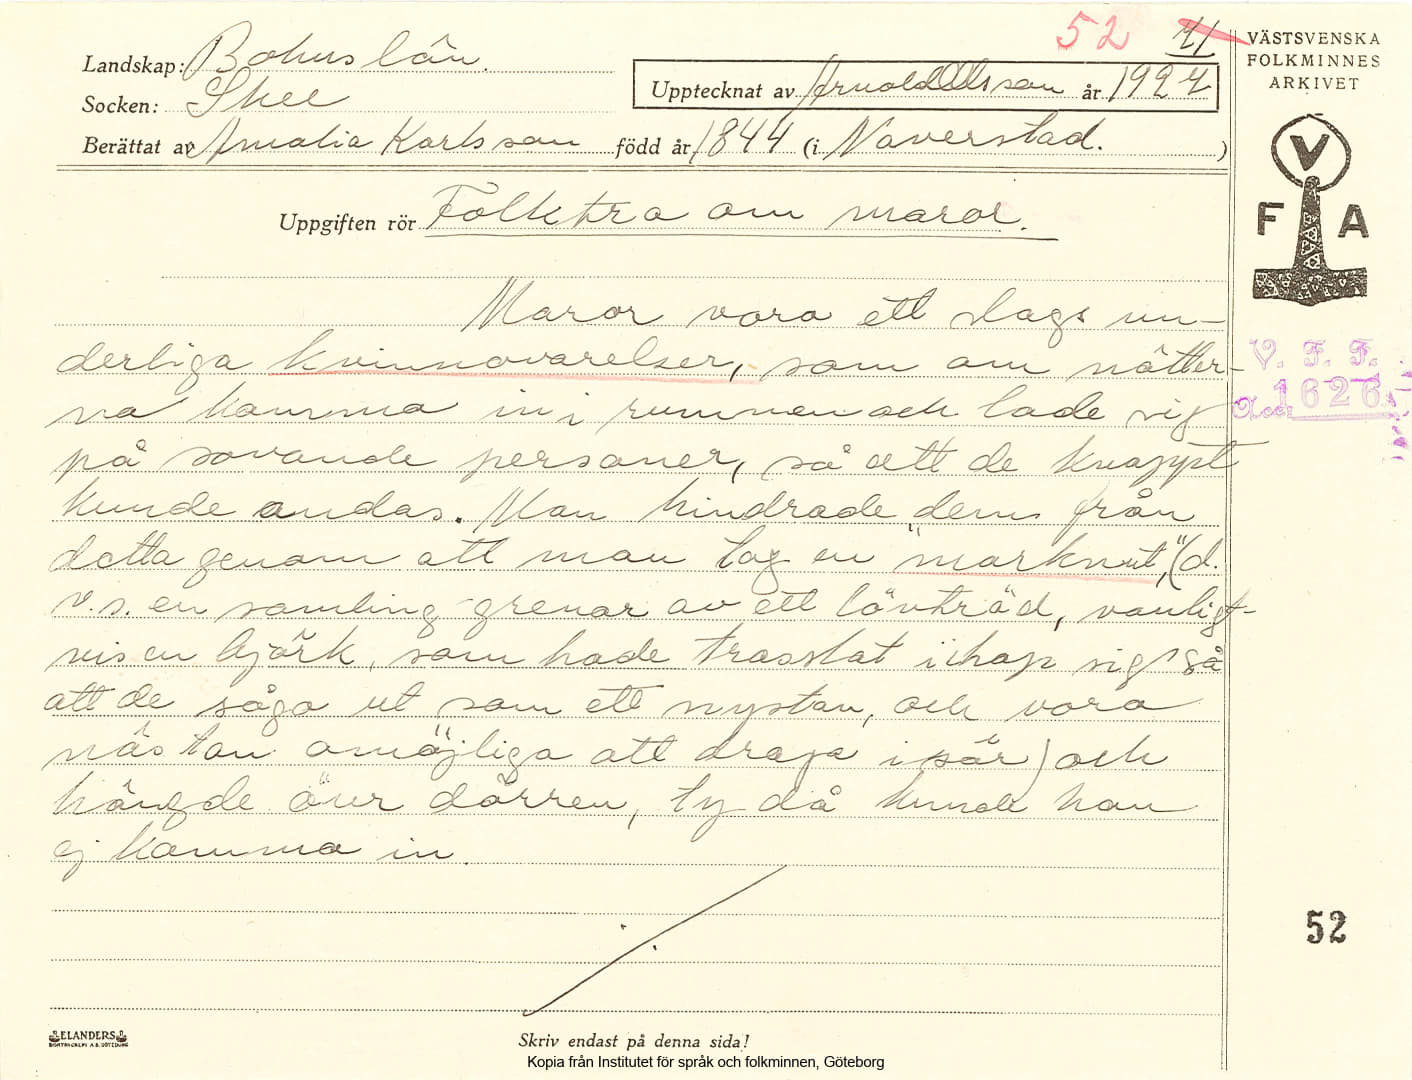 52 41
VÄSTSVENSKA
FOLKMINNES
ARKIVET
Landskap: Bohuslän.
Upptecknat av Arnold Olsson år 1927
Socken: Skee
Berättat av Amalia Karlsson född år 1844 (i Naverstad.)
Uppgiften rör Folktro om maror.
V
F A
Maror voro ett slags un-
derliga kvinnovarelser, som om nätter-
na komma in i rummen och lade sig
på sovande personer, så att de knappt
kunde andas. Man hindrade dem från
detta genom att man tog en "marknut", (d.
v.s. en samling grenar av ett lövträd, vanligt-
vis en björk, som hade trasslat ihop sig så
att de sågo ut som ett nystan, och voro
nästan omöjliga att draga isär) och
hängde över dörren, ty då kunde hon
ej komma in.
V. F. F.
Acc. 1626
52
ELANDERS
BOKTRYCKERI A.B. GÖTEBORG
Skriv endast på denna sida!
Kopia från Institutet för språk och folkminnen, Göteborg